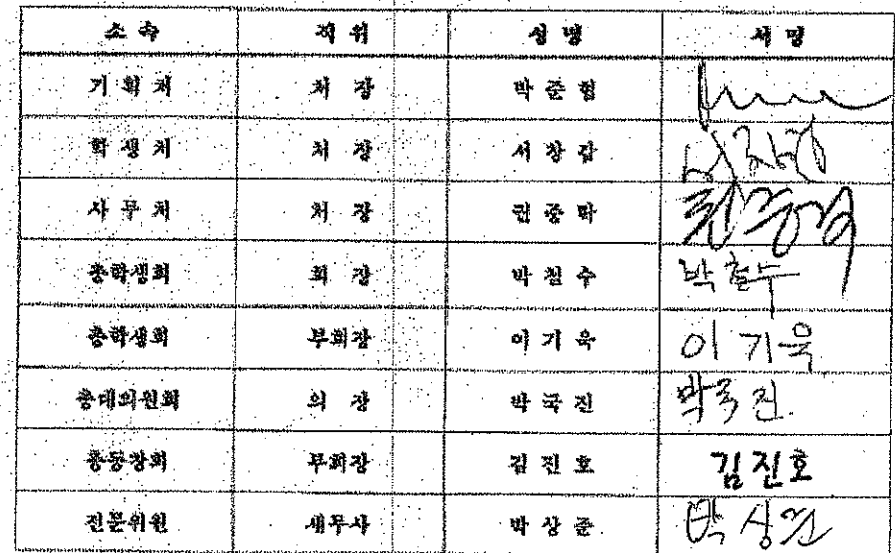 소 속 직 위 성 명 서 명
기 획 처 처 장 박 준 협
학 생 처 처 장 서 창 갑
사 무 처 처 장 권 중 락 권중락
총학생회 회 장 박 철 수 박철수
총학생회 부회장 이 기 욱 이기욱
총대의원회 의 장 박 국 진 박국진
총동창회 부회장 김 진 호 김진호
전문위원 세무사 박 상 준 박상준